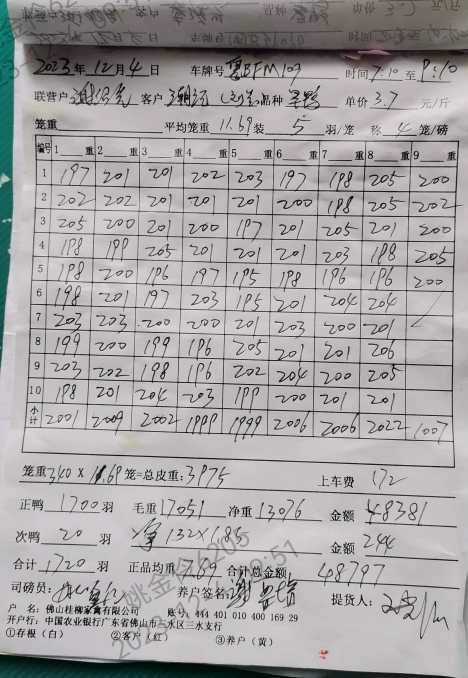 2023年12月4日 车牌号 粤BFM107 时间7:10至9:10
联营户 客户 品种 单价3.7元/斤
笼重 平均笼重11.69装5羽/笼 称4笼/磅
编号 1重 2重 3重 4重 5重 6重 7重 8重 9重
1 197 201 201 202 203 197 198 205 200
2 202 202 201 201 201 200 198 205 202
3 205 200 201 200 197 201 205 201 200
4 198 199 205 201 201 201 203 198 205
5 198 200 196 197 195 198 196 196 200
6 198 201 197 203 195 201 204 204
7 203 203 200 200 201 203 200 201
8 199 200 199 196 205 201 201 206
9 203 202 198 196 202 204 200 205
10 198 201 204 203 199 200 201 201
小计 2001 2009 2002 1999 1999 2006 2006 2022 1007
笼重340×11.69笼=总皮重:3975 上车费172
正鸭1700羽 毛重17051 净重13076 金额48381
次鸭20羽 132×1.85 金额244
合计1720羽 正品均重7.69 合计总金额48797
司磅员: 养户签名: 提货人:
户 名: 佛山桂柳家禽有限公司 账号: 444 401 010 400 169 29
开户行: 中国农业银行广东省佛山市三水区三水支行
①存根(白) ②客户(红) ③养户(黄)